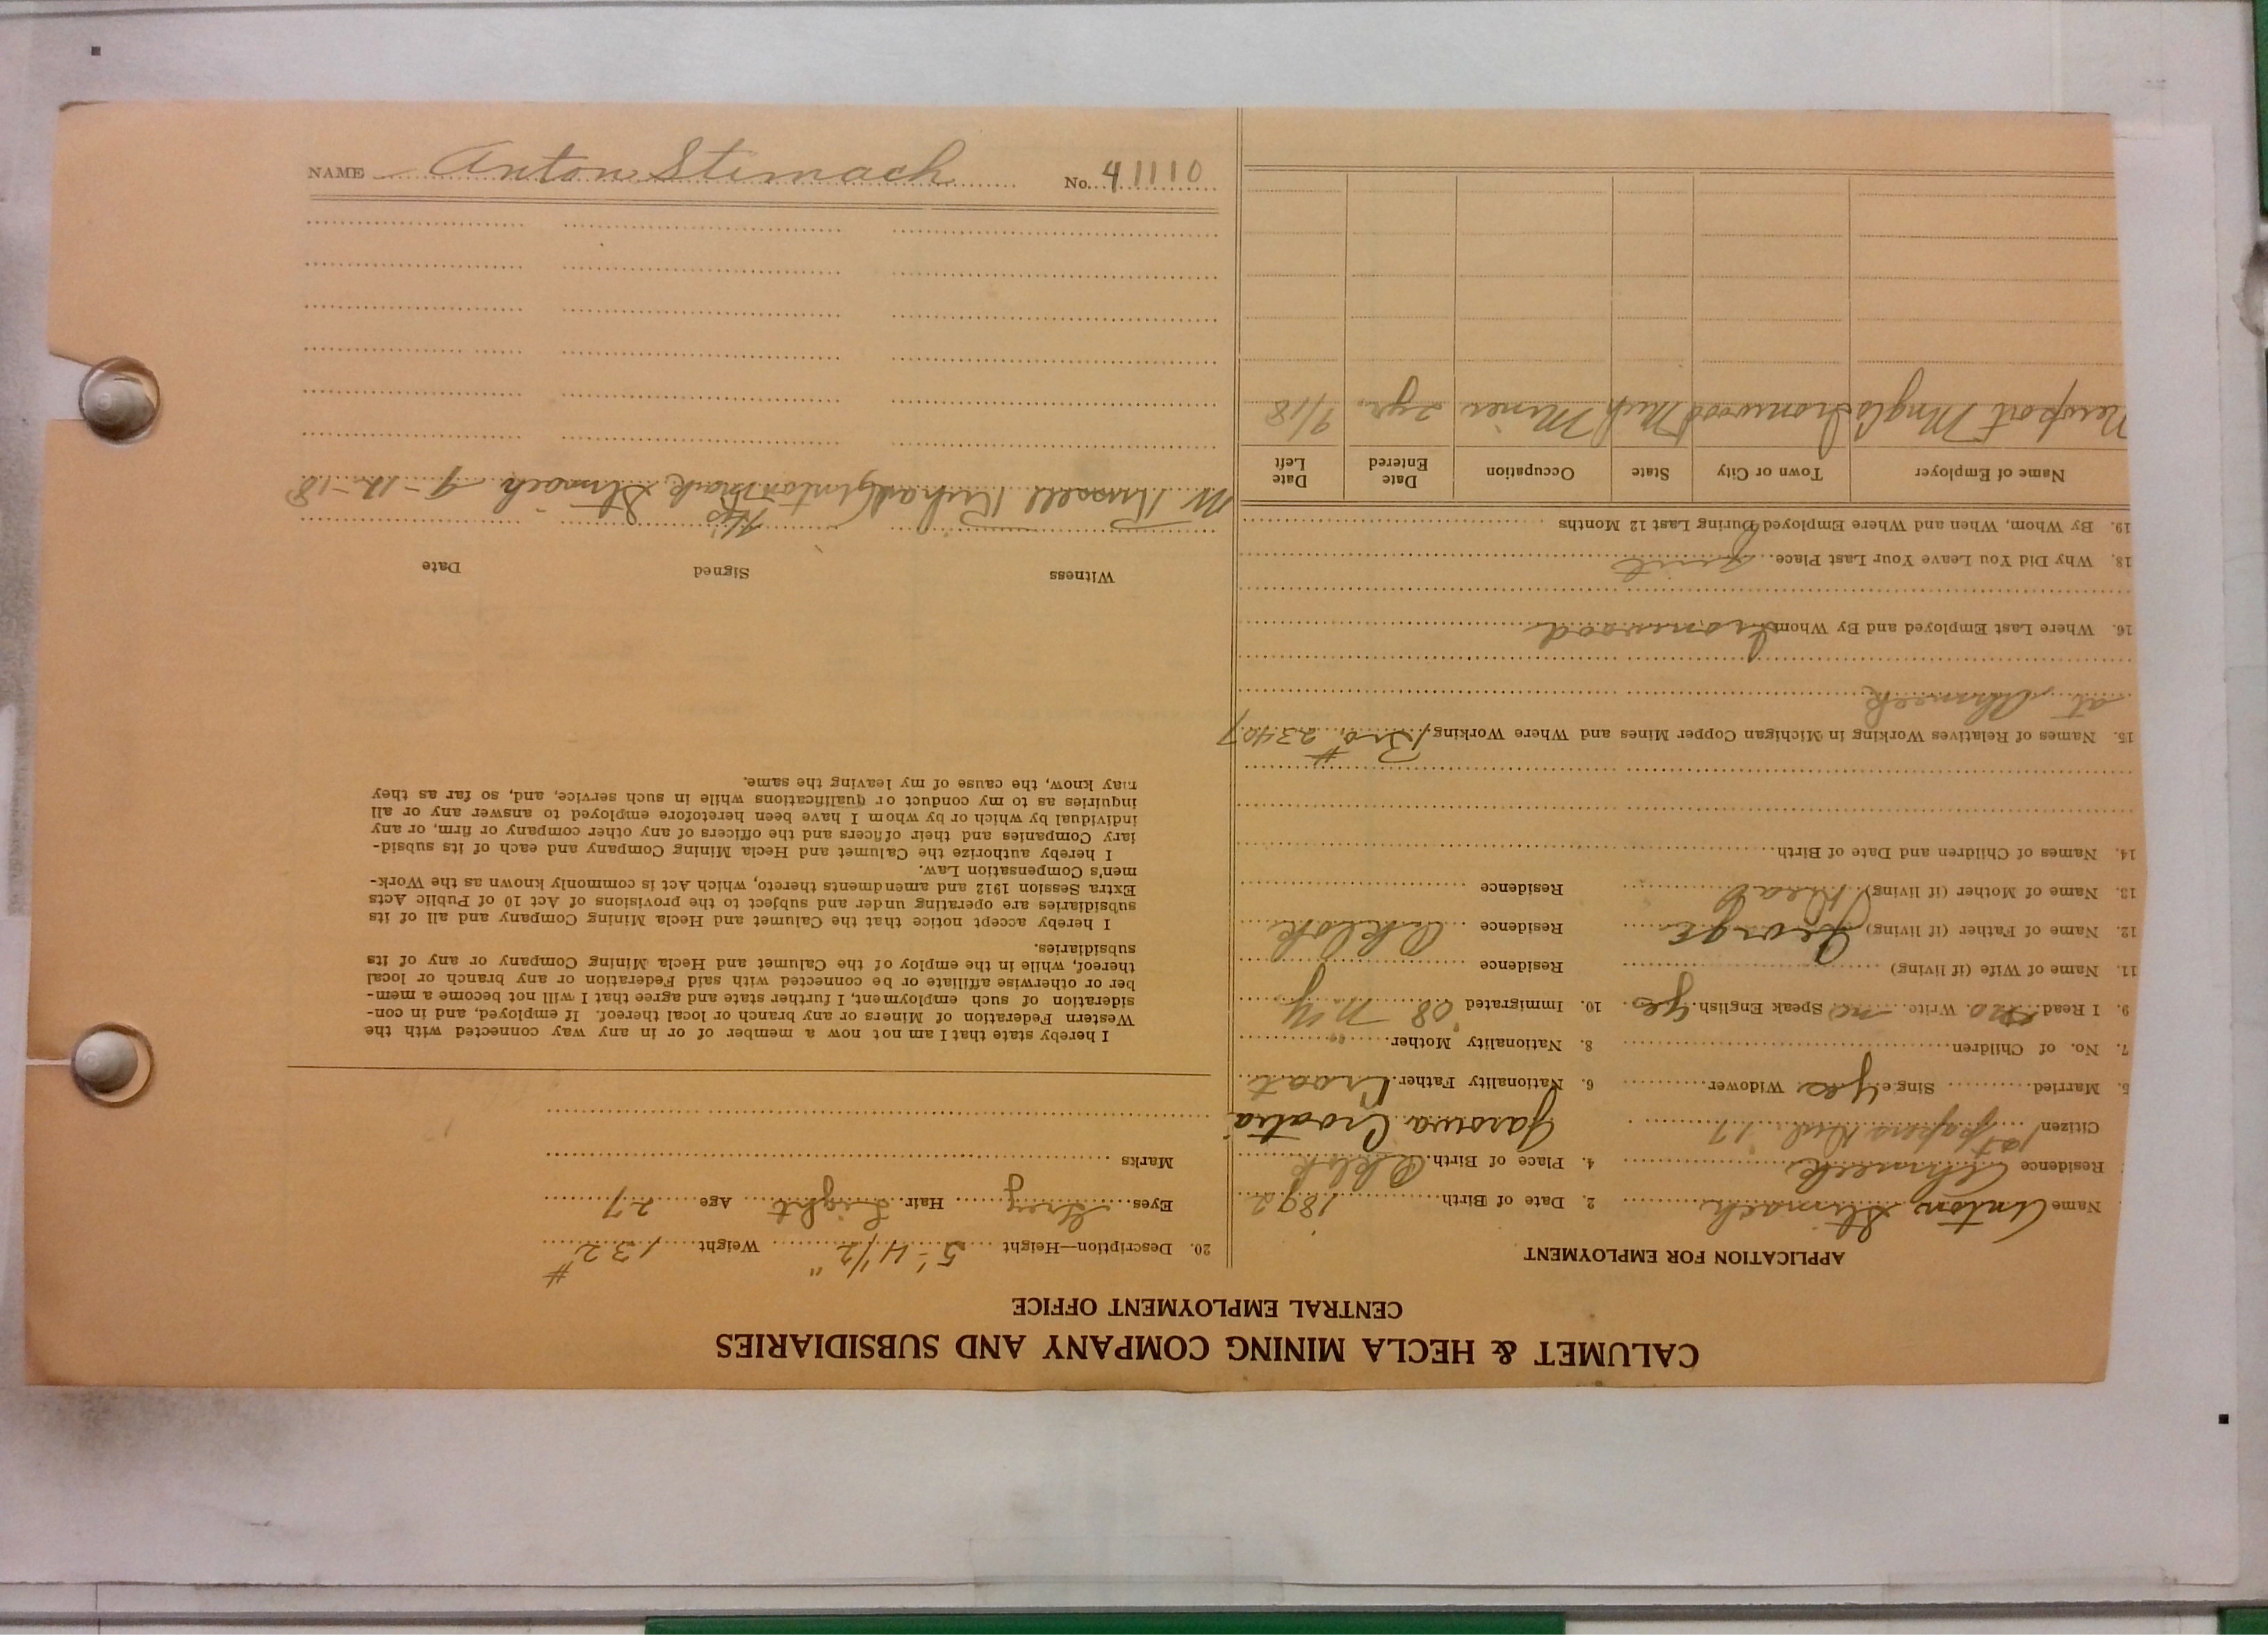 NAME Anton Stimach No. 41110
CALUMET & HECLA MINING COMPANY AND SUBSIDIARIES
CENTRAL EMPLOYMENT OFFICE
APPLICATION FOR EMPLOYMENT
Name Anton Stimach 2. Date of Birth 1892
Residence Ahmeek 4. Place of Birth
Citizen 1st papers 17 Croatia
5. Married Single Yes Widower 6. Nationality Father Croat
7. No. of Children 8. Nationality Mother "
9. I Read no Write no Speak English yes 10. Immigrated '08 N Y
11. Name of Wife (if living) Residence
12. Name of Father (if living) George Residence
13. Name of Mother (if living) Dead Residence
14. Names of Children and Date of Birth
15. Names of Relatives Working in Michigan Copper Mines and Where Working, Bro. # 23407
at Ahmeek
16. Where Last Employed and By Whom Ironwood
18. Why Did You Leave Your Last Place quit
19. By Whom, When and Where Employed During Last 12 Months
Name of Employer Town or City State Occupation Date Entered Date Left
Newport Mng Co Ironwood Mich Miner 2 yrs. 9/18
20. Description—Height 5'-4 1/2" Weight 132#
Eyes Grey Hair Light Age 27
Marks
I hereby state that I am not now a member of or in any way connected with the
Western Federation of Miners or any branch or local thereof. If employed, and in con-
sideration of such employment, I further state and agree that I will not become a mem-
ber or otherwise affiliate or be connected with said Federation or any branch or local
thereof, while in the employ of the Calumet and Hecla Mining Company or any of its
subsidiaries.
I hereby accept notice that the Calumet and Hecla Mining Company and all of its
subsidiaries are operating under and subject to the provisions of Act 10 of Public Acts
Extra Session 1912 and amendments thereto, which Act is commonly known as the Work-
men's Compensation Law.
I hereby authorize the Calumet and Hecla Mining Company and each of its subsid-
iary Companies and their officers and the officers of any other company or firm, or any
individual by which or by whom I have been heretofore employed to answer any or all
inquiries as to my conduct or qualifications while in such service, and, so far as they
may know, the cause of my leaving the same.
Witness Signed Date
His
M Russell Richard Anton mark Stimach 9-12-18